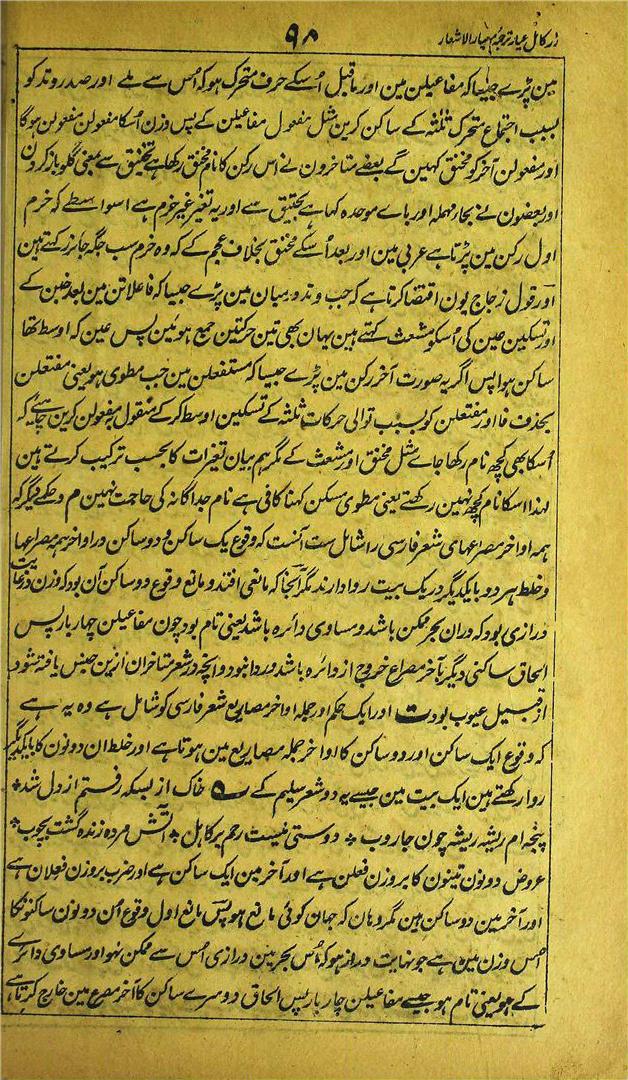 زر کامل عیار ترجمہ معیار الاشعار
۹۸
مین پڑے جیسا کہ مفاعیلن مین اور ماقبل اُسکے حرف متحرک ہو کہ اُس سے ملے اور صدر وتد کو
بسبب اجتماع متحرک ثلثہ کے ساکن کرین مثل مفعول مفاعیلن کے پس وزن اُسکا مفعولن مفعولن ہوگا
اور مفعولن آخر کو مخنق کہین گے بعضے متاخرون نے اس رکن کا نام مخنق رکھا ہے تخنیق سے بمعنی گلو باز کردن
اور بعضون نے بحاء مہملہ اور باے موحدہ کہا ہے تحبیق سے اور یہ تغیر غیر خرم ہے اسواسطے کہ خرم
اول رکن مین پڑتا ہے عربی مین اور بعد اُسکے مخنق بخلاف عجم کے کہ وہ خرم سب جگہ جائز رکھتے ہین
اور قول زجاج یون اقتضا کرتا ہے کہ جب وتد درمیان مین پڑے جیسا کہ فاعلاتن مین بعد خبن کے
اور تسکین عین کی اُسکو مشعث کہتے ہین یہان بھی تین حرکتین جمع ہوئین پس عین کہ اوسط تھا
ساکن ہوا پس اگر یہ صورت آخر رکن مین پڑے جیسا کہ مستفعلن مین جب مطوی ہو یعنی مفتعلن
بحذف فا اور مفتعلن کو بسبب توالی حرکات ثلثہ کے تسکین اوسط کرکے منقول بہ مفعولن کرین چاہیے کہ
اُسکا بھی کچھ نام رکھا جاے مثل مخنق اور مشعث کے مگر ہم بیان تغیرات کا بحسب ترکیب کرتے ہین
لہذا اسکا نام کچھ نہین رکھتے یعنی مطوی مسکن کہنا کافی ہے نام جداگانہ کی حاجت نہین م و حکمے دیگر کہ
ہمہ اواخر مصراعہای شعر فارسی را شامل ست آنست کہ وقوع یک ساکن و دو ساکن در اواخر ہمہ مصراعہا
و خلط ہر دو با یکدیگر در یک بیت روا دارند مگر آنجا کہ مانعی افتد و مانع وقوع دو ساکن آن بود کہ وزن در غایت
درازی بود کہ دران بحر ممکن باشد و مساوی دائرہ باشد یعنی تام بود چون مفاعیلن چہار بار پس
الحاق ساکنی دیگر بآخر مصراع خروج از دائرہ باشد و روا نبود و آنچہ در شعر متاخران ازین جنس یافتہ شود
از قبیل عیوب بود ت اور ایک حکم اور جملہ اواخر مصاریع شعر فارسی کو شامل ہے وہ یہ ہے
کہ وقوع ایک ساکن اور دو ساکن کا اواخر جملہ مصاریع مین ہوتا ہے اور خلط ان دونون کا بایکدیگر
روا رکھتے ہین ایک بیت مین جیسے یہ دو شعر سلیم کے ؎ خاک از بسکہ رفتم از دل شد ٭
پنجہ ام ریشہ ریشہ چون جاروب ٭ دوستی نیست رحم بر کاہل ٭ آتش مردہ زندہ گشت بچوب ٭
عروض دونون بیتون کا بر وزن فعلن ہے اور آخر مین ایک ساکن ہے اور ضرب بر وزن فعلان ہے
اور آخر مین دو ساکن ہین مگر وہان کہ جہان کوئی مانع ہو پس مانع اول وقوع اُن دونون ساکنونکا
اُس وزن مین ہے جو نہایت دراز ہو کہ اُس بحر مین درازی اُس سے ممکن نہو اور مساوی دائرے
کے ہو یعنی تام ہو جیسے مفاعیلن چار بار پس الحاق دوسرے ساکن کا آخر مصرع مین خارج کرتا ہے